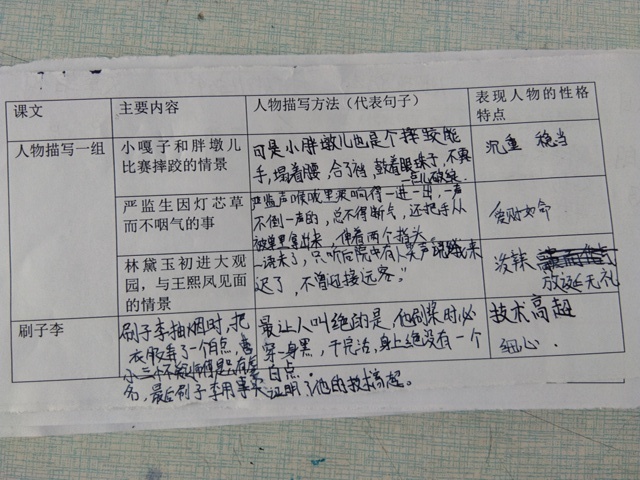 课文 主要内容 人物描写方法（代表句子） 表现人物的性格
特点
人物描写一组 小嘎子和胖墩儿
比赛摔跤的情景
可是小胖墩儿也是个摔跤能
手，塌着腰，合了裆，鼓着眼珠子，不露
一点儿破绽.
沉重 稳当
严监生因灯芯草
而不咽气的事
严监声喉咙里痰响得一进一出，一声
不倒一声的，总不得断气，还把手从
被单里拿出来，伸着两个指头
爱财如命
林黛玉初进大观
园，与王熙凤见面
的情景
一语未了，只听后院中有人笑声
来迟了，不曾迎接远客。"
泼辣
放诞无礼
刷子李 刷子李抽烟时，把
衣服弄了一个白点，曹
小三
名，最后刷子李用事实证明了他的技术高超。
最让人叫绝的是，他刷浆时必
穿一身黑，干完活，身上绝没有一个
白点.
技术高超
细心.